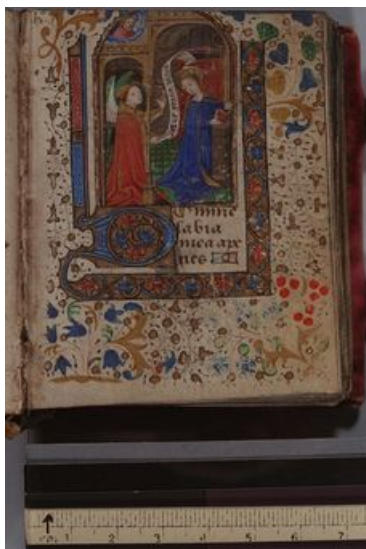 Domine
labia
mea ape
ries
1 2 3 4 5 6 7